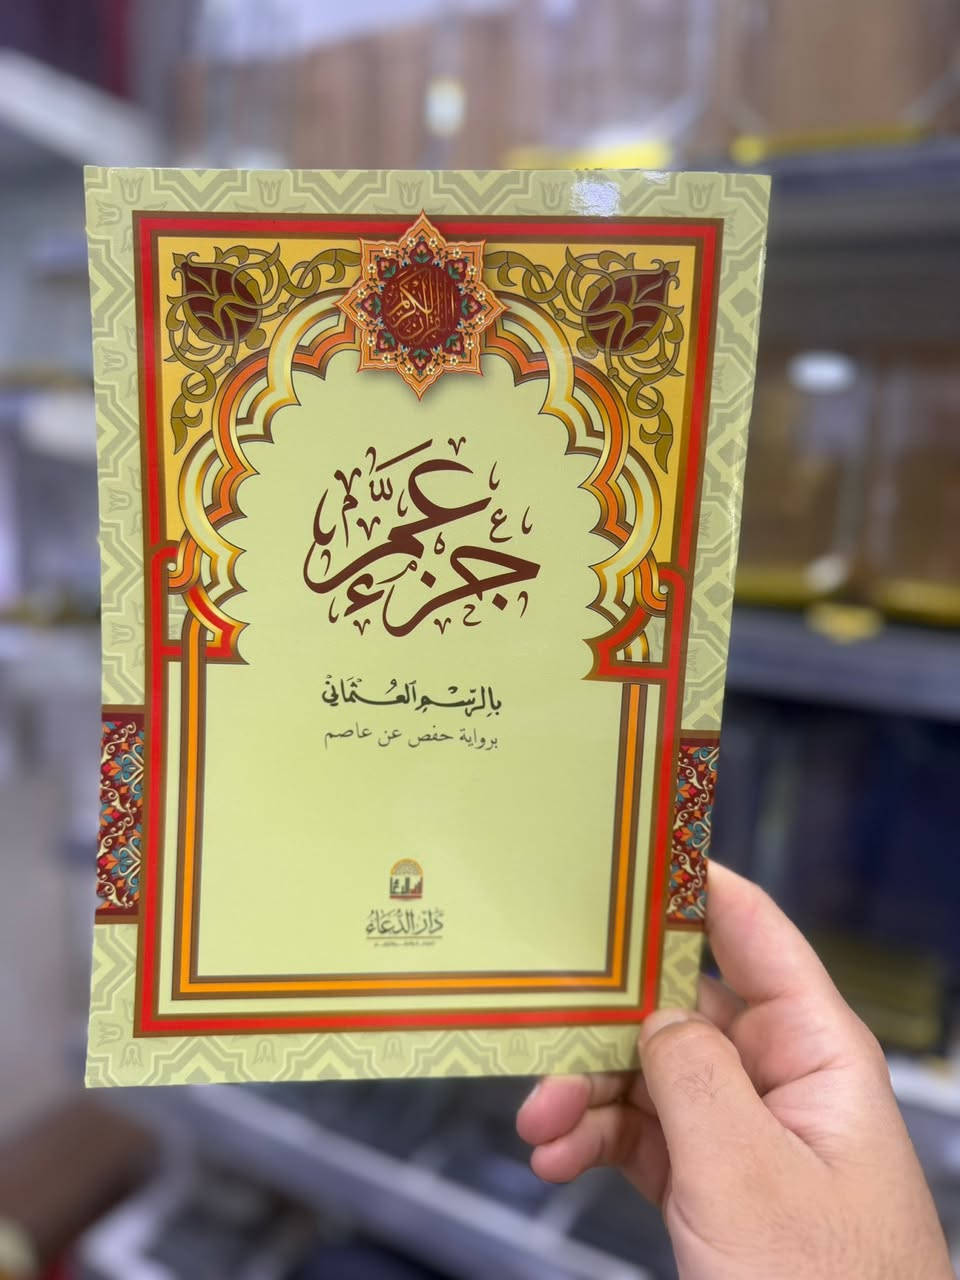 القرآن الكريم
جزء عم
بالرسم العثماني
برواية حفص عن عاصم
دار الدعاء